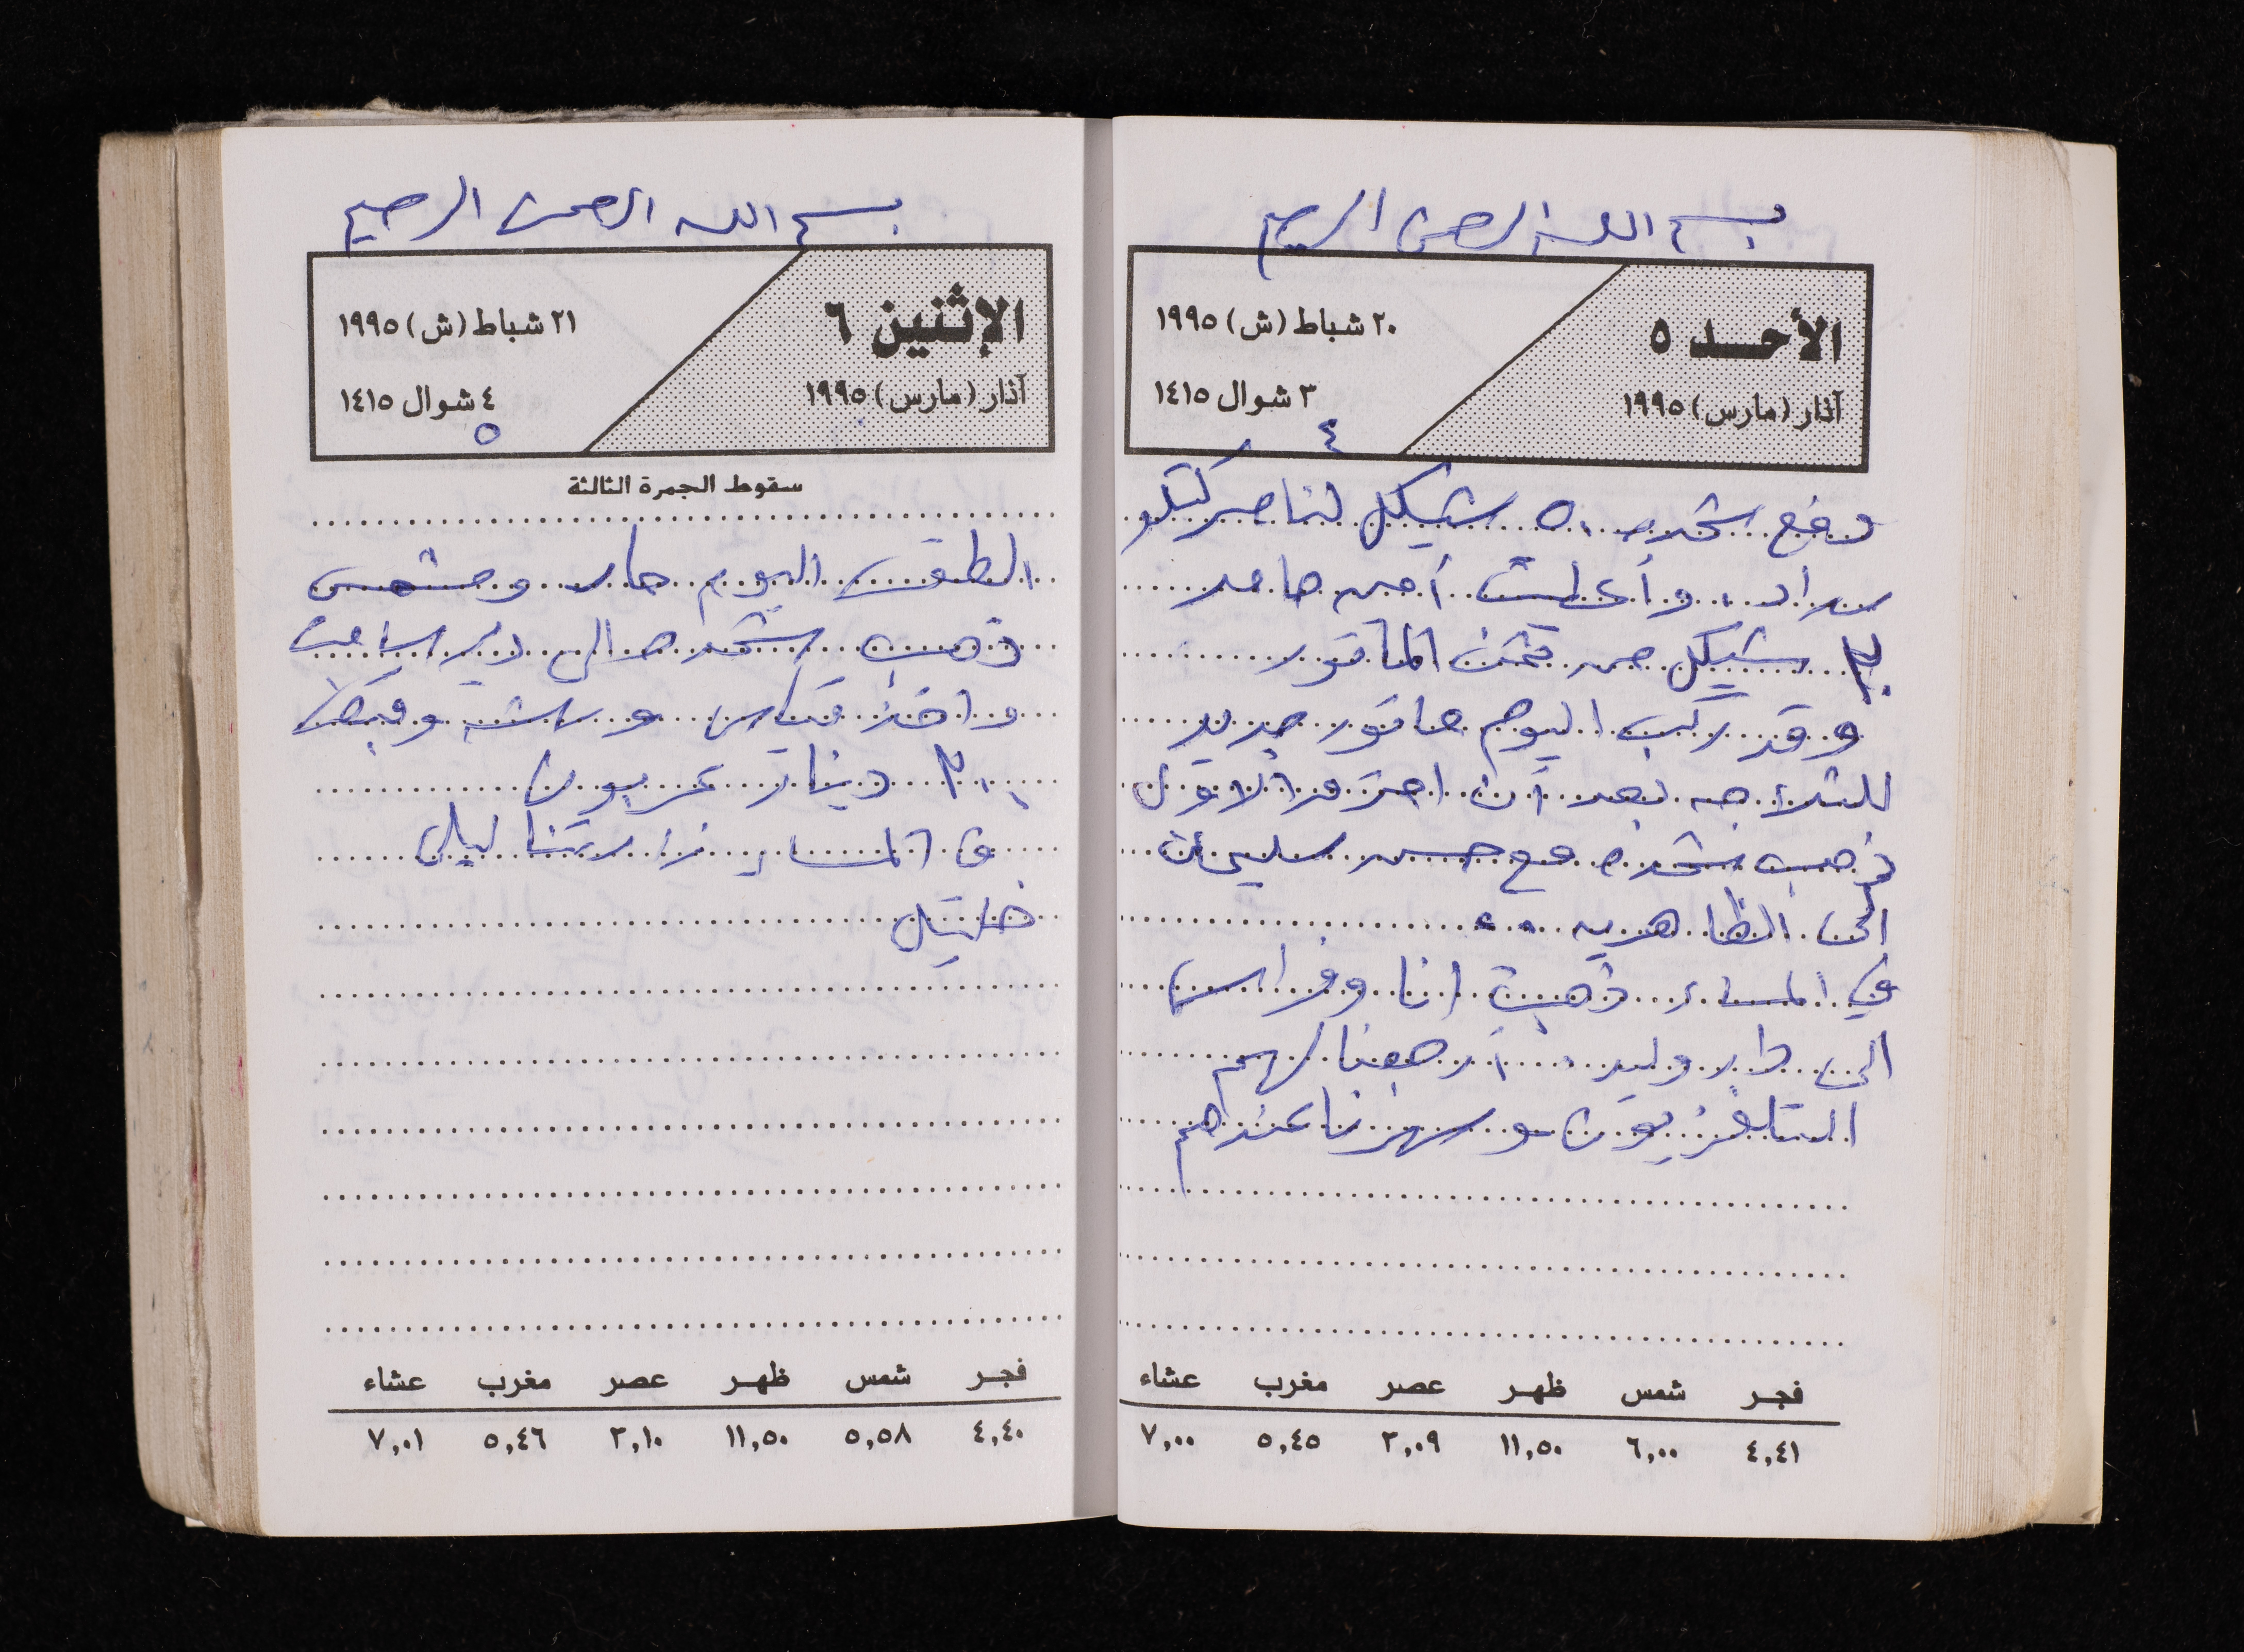 بسم الله الرحمن الرحيم
الأحد ٥
آذار (مارس) ١٩٩٥
٢٠ شباط (ش) ١٩٩٥
٣ شوال ١٤١٥
٤
دفع شحده ٥٠ شيكل لناصر كتلو
براد وأعطيت أمين حامد
٣٠ شيكل من ثمن الماتور
وقد ركب اليوم ماتور جديد
للثلاجه بعد أن احترق الاول
ذهب شحده مع حسن سليمان
الى الظاهريه
في المساء ذهبت انا وفراس
الى دار وليد أرجعنا لهم
التلفزيون وسهرنا عندهم
فجر شمس ظهر عصر مغرب عشاء
٤,٤١ ٦,٠٠ ١١,٥٠ ٣,٠٩ ٥,٤٥ ٧,٠٠
بسم الله الرحمن الرحيم
الإثنين ٦
آذار (مارس) ١٩٩٥
٢١ شباط (ش) ١٩٩٥
٤ شوال ١٤١٥
٥
سقوط الجمرة الثالثة
الطقس اليوم حار ومشمس
ذهب شحده الى دير سامت
واخذ قياس ورشه وقبض
٢٠٠ دينار عربون
في المساء زارتنا ليلى
خليل
فجر شمس ظهر عصر مغرب عشاء
٤,٤٠ ٥,٥٨ ١١,٥٠ ٣,١٠ ٥,٤٦ ٧,٠١